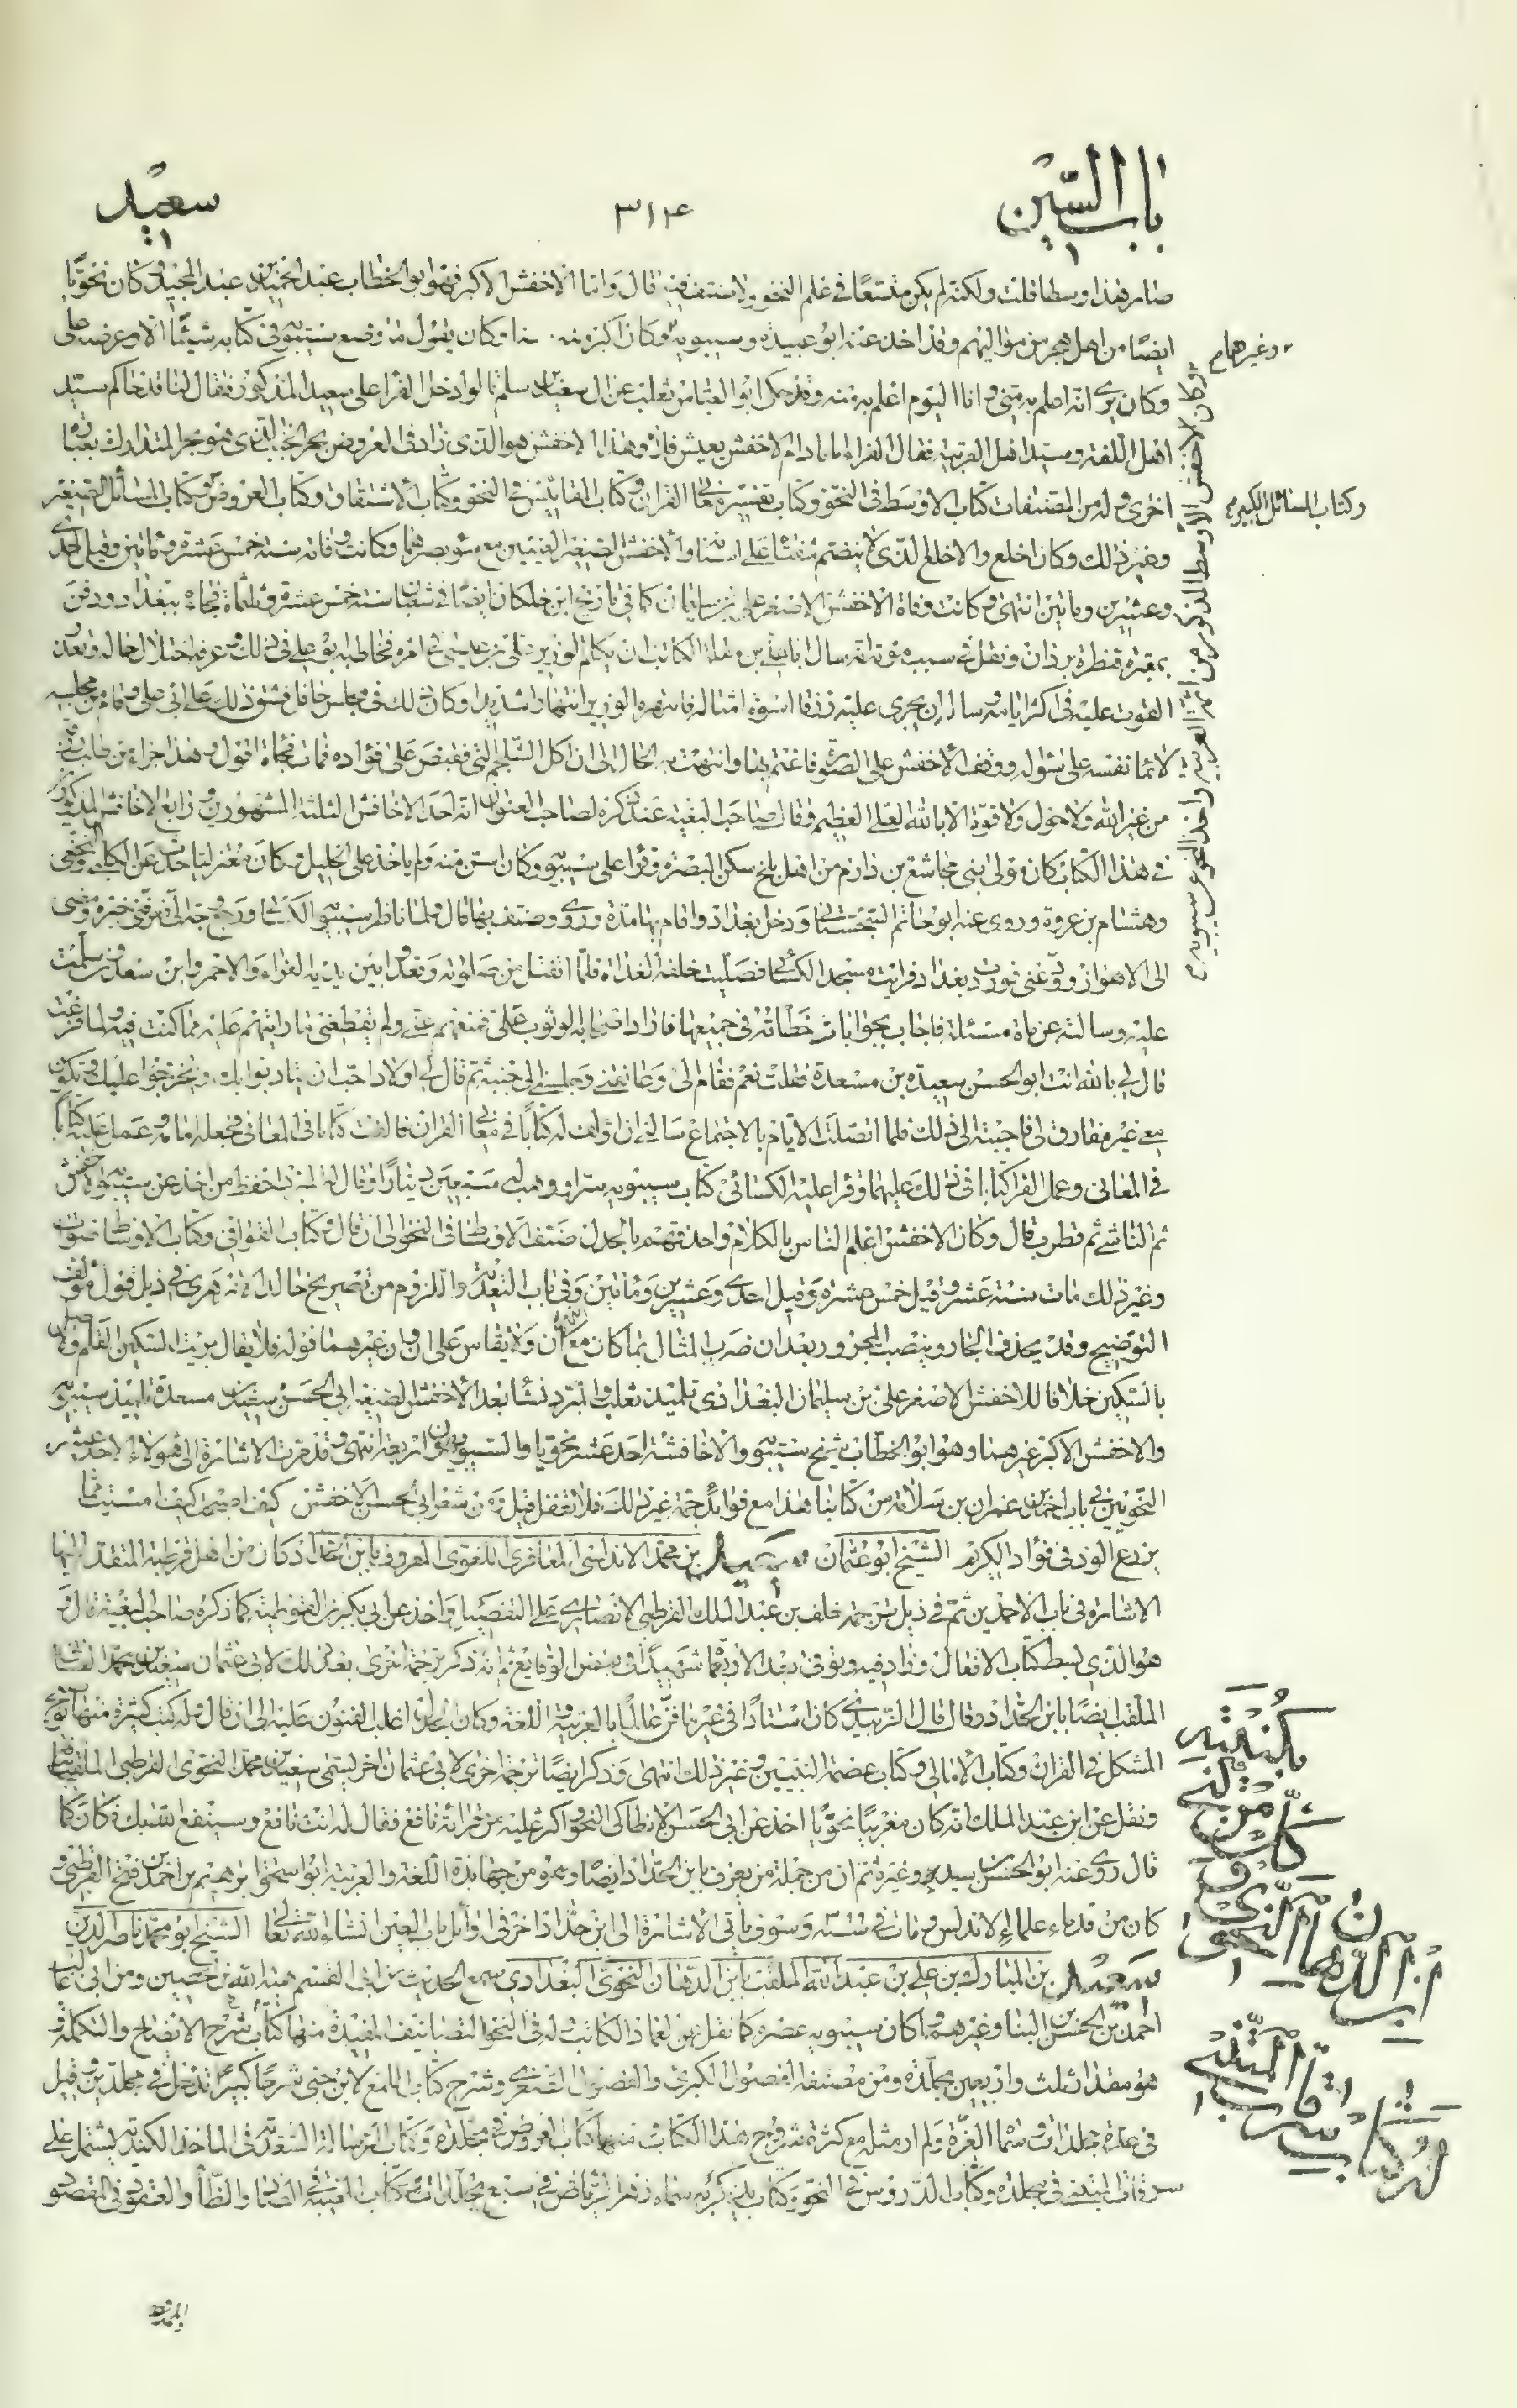 باب السّين
٣١۴
سعيد
صار هذا وسطا قلت ولكنه لم يكن متسعًا في علم النحو ولا صنف فيه قال وامّا الاخفش الاكبر فهو ابو الخطاب عبد الحميد بن عبد المجيد وكان نحويّا
ايضًا من اهل هجر من مواليهم وقد اخذ عنه ابو عبيدة وسيبويه وكان اكبر منه وكان يقول ما وضع سيبويه في كتابه شيئًا الا وعرضه على
وغيرهما م
وكان يرى انه اعلم به منى وانا اليوم اعلم به منه وقد حكى ابو العباس ثعلب عن آل سعيد بن سلم قالوا دخل الفرا على سعيد المذكور فقال لنا قد جاءكم سيّد
اهل اللغة وسيد اهل العربية فقال الفراء اما مادام الاخفش يعيش فلا وهذا الاخفش هو الذى زاد في العروض بحر الخبب الذى هو بحر المتدارك بعبارة
اخرى وله من المصنفات كتاب الاوسط في النحو وكتاب تفسير معانى القران وكتاب المقاييس في النحو وكتاب الاشتقاق وكتاب العروض وكتاب المسائل الصغير
وكتاب المسائل الكبير م
وغير ذلك وكان اجلع والاجلع الذى لا ينضم شفتاه على اسنانه والاخفش الصغير العينين مع سوء بصرهما وكانت وفاته سنة خمس عشرة ومأتين وقيل احدى
وعشرين ومأتين انتهى وكانت وفاة الاخفش الاصغر على بن سليمان كما في تاريخ ابن خلكان ايضًا في شعبان سنة خمس عشرة وثلثمأة فجاءة ببغداد ودفن
بمقبرة قنطرة بردان ونقل في سبب موته انه سال ابا على بن مقلة الكاتب ان يكلم الوزير على بن عيسى في امره فخاطبه ابو على في ذلك وعرفه اختلال حاله وتعذر
القوت عليه في اكثر ايامه وساله ان يجرى عليه رزقا اسوة امثاله فانتهره الوزير انتهارا شديدا وكان ذلك في مجلس حافل فشق ذلك على ابى على وقام من مجلسه
لائما نفسه على سؤاله ووقف الاخفش على الصّورة فاغتم بها وانتهت به الحال الى ان اكل الشلجم النى فقبض على فؤاده فمات فجاة اقول وهذا جزاء من طلب
من غير الله ولا حول ولا قوّة الا بالله العلى العظيم وقال صاحب البغية عند ذكره لصاحب العنوان انه احد الاخافش الثلثة المشهورين ورابع الاخافش المذكورين
في هذا الكتاب كان مولى بنى مجاشع بن دارم من اهل بلخ سكن البصرة وقرأ على سيبويه وكان اسن منه ولم ياخذ على الخليل وكان معتزليا حدث عن الكلبى والنخعى
وهشام بن عروة وروى عنه ابو حاتم السجستانى ودخل بغداد واقام بها مدة وروى وصنف بها قال ولما ناظر سيبويه الكسائى ورجع وجه الى فعرفنى خبره ومضى
الى الاهواز وودّعنى فوردت بغداد فرايت مسجد الكسائى فصليت خلفه الغداة فلما انفتل من صلوته وقعد وبين يديه الفراء والاحمر وابن سعدان سلمت
عليه وسالته عن مأة مسئلة فاجاب بجوابات خطّأته في جميعها فاراد اصحابه الوثوب على فمنعهم عنى ولم يقطعنى ما رايتهم عليه مما كنت فيه ولما فرغت
قال لى بالله انت ابو الحسن سعيد بن مسعدة فقلت نعم فقام الى وعانقنى وجلسنى الى جنبه ثم قال لى اولاد احب ان يتادبوا بك ويتخرجوا عليك وتكون
معى غير مفارق لى فاجبته الى ذلك فلما اتصلت الايام بالاجتماع سالنى ان اؤلف له كتابًا في معانى القران فالفت كتابا في المعانى فجعله امامه وعمل عليه كتابًا
في المعانى وعمل الفرا كتابا في ذلك عليهما وقرا عليه الكسائى كتاب سيبويه سرا ووهب له سبعين دينارًا وقال المبرد احفظ من اخذ عن سيبويه الاخفش
ثم الناشى ثم قطرب قال وكان الاخفش اعلم الناس بالكلام واحذقهم بالجدل صنف الاوسط في النحو الى ان قال وكتاب القوافى وكتاب الاوساط
وغير ذلك مات سنة عشر وقيل خمس عشرة وقيل احدى وعشرين ومأتين وفى باب التعدية واللزوم من تصريح خالد الازهرى في ذيل قول مؤلف
التوضيح وقد يحذف الجار وينصب المجرور بعد ان ضرب المثال بما كان مع أن وان ولا يقاس على ان وان غيرهما قوله فلا يقال بريت السكين القلم والاصل
بالسكين خلافا للاخفش الاصغر على بن سليمان البغدادى تلميذ ثعلب والمبرد نشا بعد الاخفش الصغير ابى الحسن سعيد بن مسعدة تلميذ سيبويه
والاخفش الاكبر غيرهما وهو ابو الخطاب شيخ سيبويه والاخافشة احد عشر نحويا والسيبويهون اربعة انتهى وقد مرت الاشارة الى هؤلاء الاحد عشر
النحويين في باب احمد بن عمران بن سلامة من كتابنا هذا مع فوائد جمة غير ذلك فلا تغفل قيل ومن شعر ابى الحسن الاخفش كيف اصبحت كيف امسيت مما
يزرع الود في فؤاد الكريم الشيخ ابو عثمان سعيد بن محمد الاندلسى المعافرى اللغوى المعروف بابن الحداد كان من اهل قرطبة المتقدّم اليها
الاشارة في باب الاحمدين ثمّ في ذيل ترجمة خلف بن عبد الملك القرطبى الانصارى على التفصيل واخذ عن ابى بكر بن القوطية كما ذكره صاحب البغية قال و
هو الذى بسط كتاب الافعال وزاد فيه وتوفى بعد الاربعمأة شهيدًا في بعض الوقايع ثم انه ذكر ترجمة اخرى بعد ذلك لابى عثمان سعيد بن محمد الغسانى
الملقب ايضًا بابن الحداد وقال قال الزبيدى كان استاذًا في غير ما فنّ عالمًا بالعربية واللغة وكان الجدل اغلب الفنون عليه الى ان قال وله كتب كثيرة منها توضيح
المشكل في القران وكتاب الامالى وكتاب عصمة النبيين وغير ذلك انتهى وذكر ايضًا ترجمة اخرى لابى عثمان اخر يسمى سعيد بن محمد النحوى القرطبى الملقب
ونقل عن ابن عبد الملك انه كان مغربيًا نحويًا اخذ عن ابى الحسن الانطاكى النحو اكثر عليه من قرائة نافع فقال له انت نافع وسينفع الله بك فكان كما
قال روى عنه ابو الحسن بن سيده وغيره ثم ان من جملة من يعرف بابن الحداد ايضًا وهو من جهابذة اللغة والعربية ابو اسحق ابراهيم بن احمد بن فتح القرطبى و
كان من قدماء علماء الاندلس ومات في سنة وسوف ياتى الاشارة الى ابن حداد اخر في اوائل باب العين انشاء الله تعالى الشيخ ابو محمد ناصر الدين
سعيد بن المبارك بن على بن عبد الله الملقب بابن الدهان النحوى البغدادى سمع الحديث من ابى القسم هبة الله بن الحصين ومن ابى غالب
احمد بن الحسن بن البنا وغيرهما وكان سيبويه عصره كما نقل عن العماد الكاتب له في النحو التصانيف المفيدة منها كتاب شرح الايضاح والتكملة و
هو مقدار ثلث واربعين مجلّدة ومن مصنفه الفصول الكبرى والفصول الصغرى وشرح كتاب اللمع لابن جنى شرحًا كبيرًا تدخل في مجلدين وقيل
في عدة مجلدات وسمّاه الغرّة ولم ار مثله مع كثرة شروح هذا الكتاب ومنها كتاب العروض في مجلدة وكتاب الرسالة السعدية في الماخذ الكندية يشتمل على
سرقات المتنبى في مجلدة وكتاب الدروس في النحو وكتاب تذكرته سماه زهر الرياض في سبع مجلدات وكتاب الغنية في الضاد والظاء والعقود في المقصور
والممدود